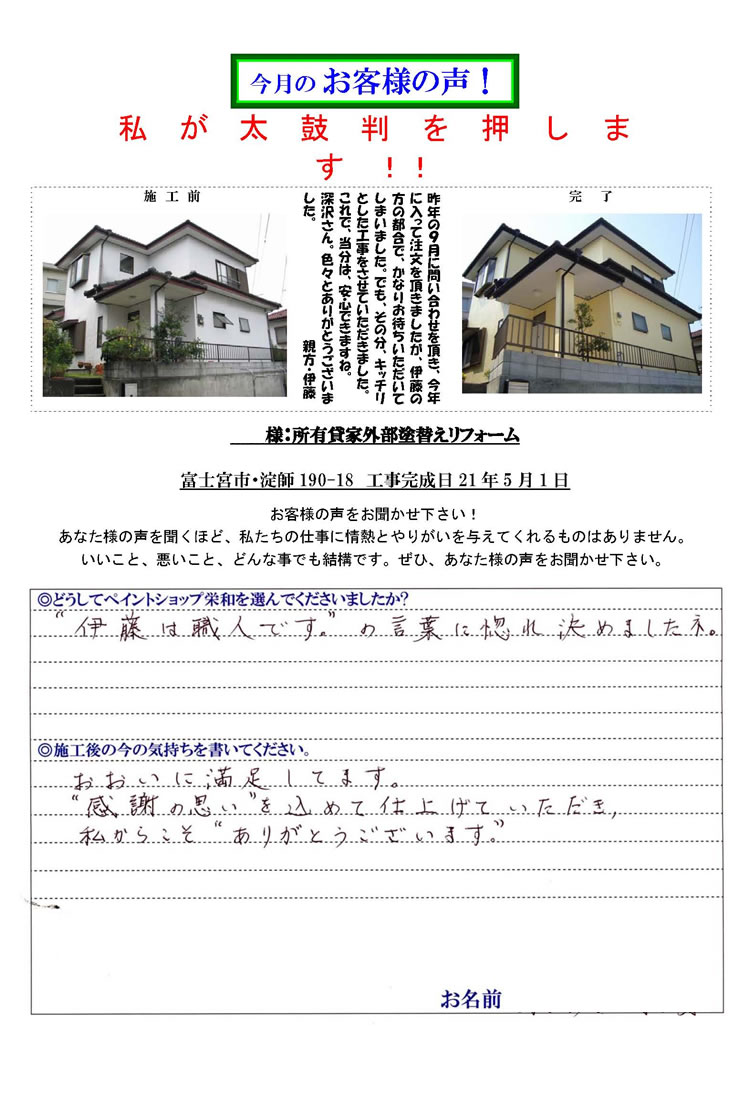 今月の お客様の声！
私が太鼓判を押しま
す！！
施 工 前
昨年の９月に問い合わせを頂き、今年
に入って注文を頂きましたが、伊藤の
方の都合で、かなりお待ちいただいて
しまいました。でも、その分、キッチリ
とした工事をさせていただきました。
これで、当分は、安心できますね。
深沢さん。色々とありがとうございま
した。
親方・伊藤
完 了
様：所有貸家外部塗替えリフォーム
富士宮市・淀師 190-18 工事完成日 21 年 5 月 1 日
お客様の声をお聞かせ下さい！
あなた様の声を聞くほど、私たちの仕事に情熱とやりがいを与えてくれるものはありません。
いいこと、悪いこと、どんな事でも結構です。ぜひ、あなた様の声をお聞かせ下さい。
◎どうしてペイントショップ栄和を選んでくださいましたか？
“伊藤は職人です。”の言葉に惚れ決めましたネ。
◎施工後の今の気持ちを書いてください。
おおいに満足してます。
“感謝の思い”を込めて仕上げていただき,
私からこそ“ありがとうございます。”
お名前